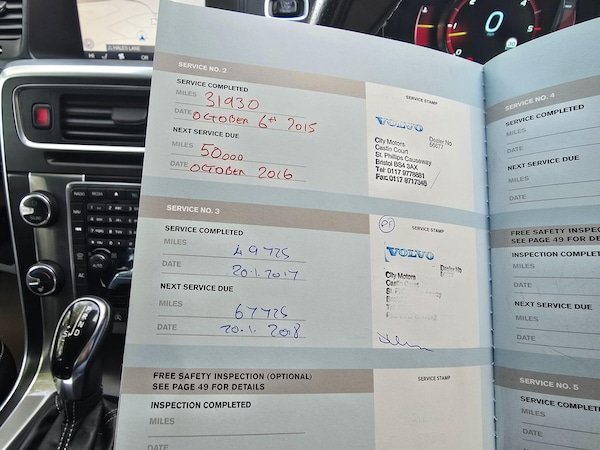 SERVICE NO. 2
SERVICE COMPLETED
MILES 31930
DATE OCTOBER 6th 2015
NEXT SERVICE DUE
MILES 50000
DATE OCTOBER 2016
SERVICE STAMP
VOLVO
City Motors Dealer No
Castle Court 56677
St. Phillips Causeway
Bristol BS4 3AX
Tel 0117 9778881
Fax 0117 9717345
SERVICE NO. 3
SERVICE COMPLETED
MILES 49725
DATE 20.1.2017
NEXT SERVICE DUE
MILES 67725
DATE 20.1.2018
PF
SERVICE STAMP
VOLVO
City Motors Dealer No
Castle Court
FREE SAFETY INSPECTION (OPTIONAL)
SEE PAGE 49 FOR DETAILS
INSPECTION COMPLETED
MILES
DATE
SERVICE STAMP
SERVICE NO. 4
SERVICE COMPLETED
MILES
DATE
NEXT SERVICE DUE
MILES
DATE
FREE SAFETY INSPEC
SEE PAGE 49 FOR DE
INSPECTION COMPLET
MILES
DATE
NEXT SERVICE DUE
MILES
DATE
SERVICE NO. 5
SERVICE COMPLETE
MILES
DATE
0